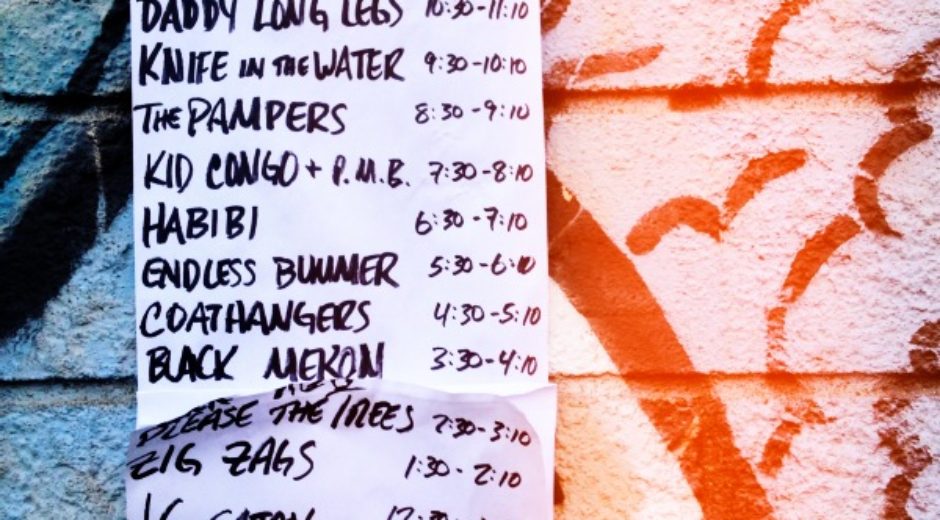 DADDY LONG LEGS 10:30-11:10
KNIFE IN THE WATER 9:30-10:10
THE PAMPERS 8:30-9:10
KID CONGO + P.M.B. 7:30-8:10
HABIBI 6:30-7:10
ENDLESS BUMMER 5:30-6:10
COATHANGERS 4:30-5:10
BLACK MEKON 3:30-4:10
PLEASE THE TREES 2:30-3:10
ZIG ZAGS 1:30-2:10
12:30